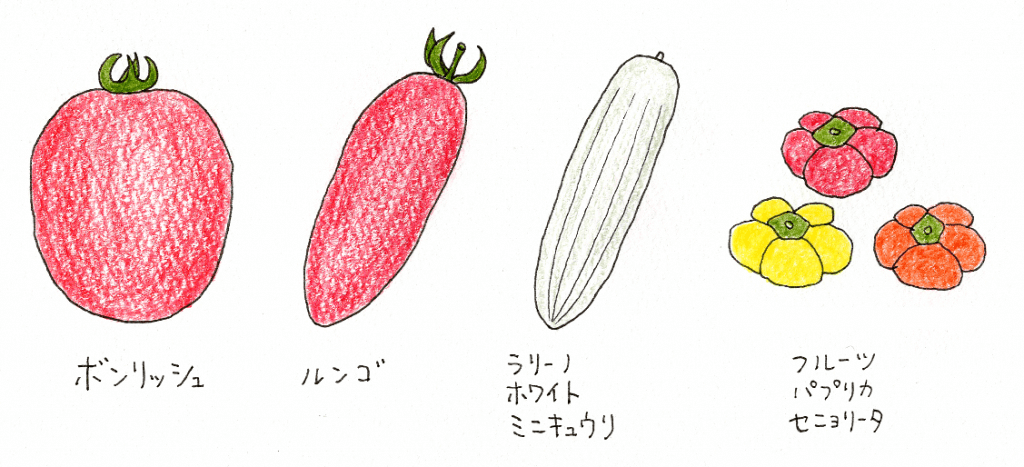 ボンリッシュ
ルンゴ
ラリーノ
ホワイト
ミニキュウリ
フルーツ
パプリカ
セニョリータ